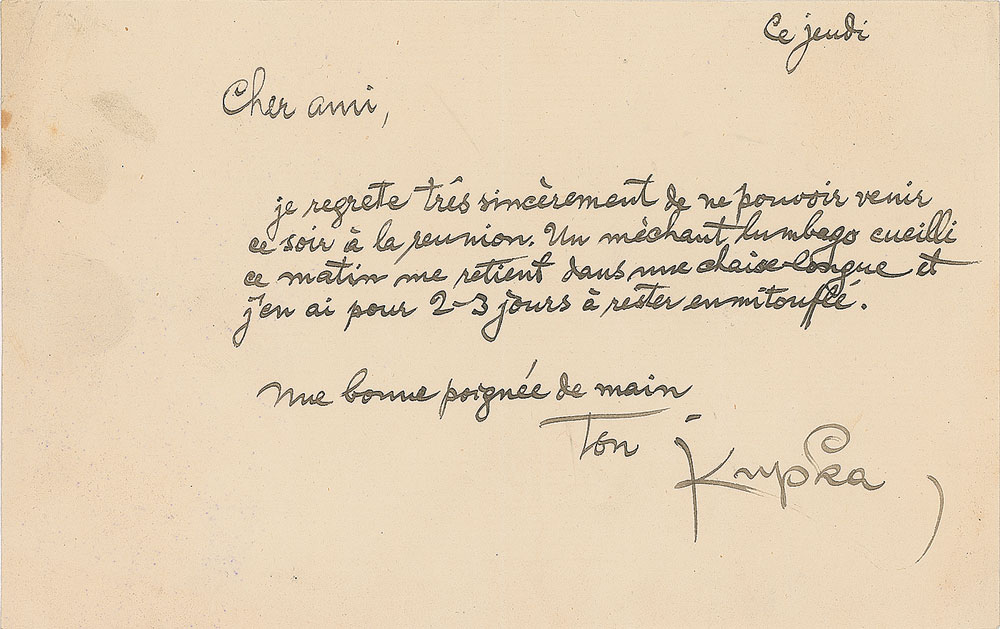 Ce jeudi
Cher ami,
je regrete três sincèrement de ne pouvoir venir
ce soir à la reunion. Un mèchant lumbago cueilli
ce matin me retient dans une chaise-longue et
j'en ai pour 2-3 jours à rester enmitouflé.
Une bonne poignée de main
Ton Kupka